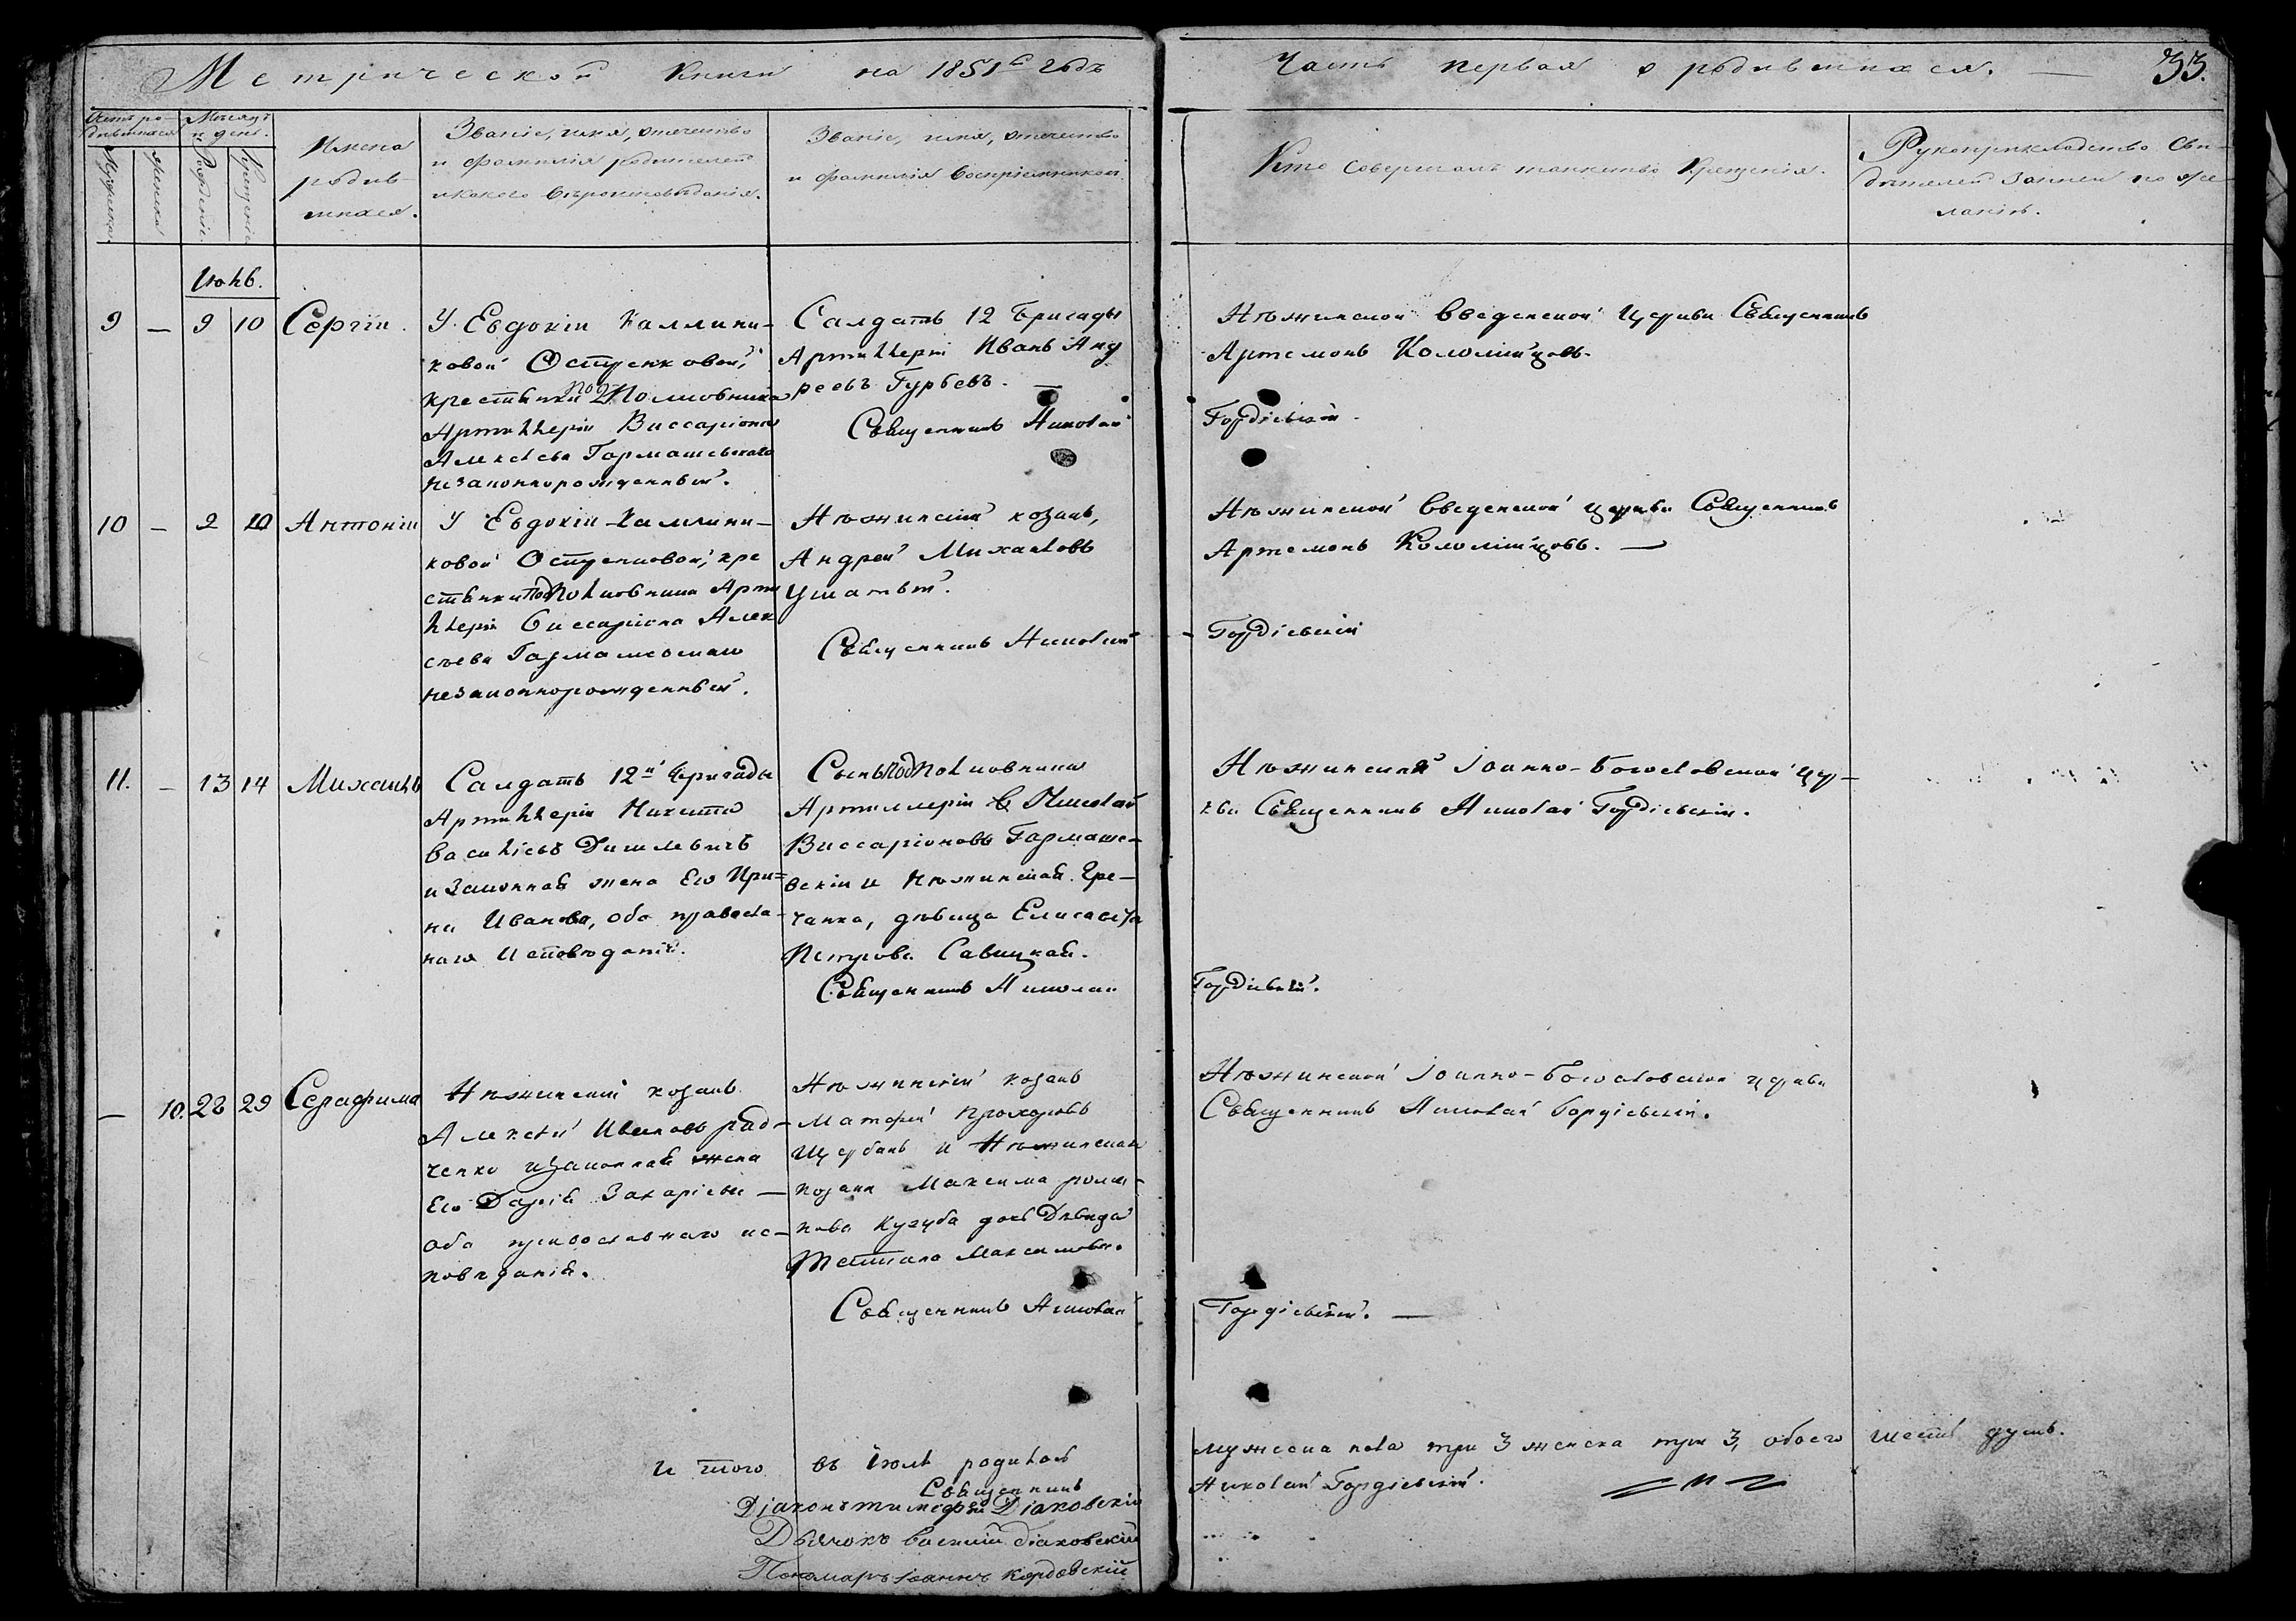 Метрической книги на 1851й годъ
Часть первая о родившихся. — 33.
Счетъ ро-
дившихся
Мѣсяцъ
и день.
Мужеска
Женска
Рожденіе
Крещеніе
Имена
родив-
шихся.
Званіе, имя, отечество
и фамилія родителей
и какого вѣроисповѣданія.
Званіе, имя, отечество
и фамилія воспріемниковъ
Кто совершалъ таинство крещенія.
Рукоприкладство сви-
дѣтелей записи по же-
ланію.
Іюль.
9 — 9 10 Сергій.
У Евдокіи Каллини-
ковой Остренковой,
крестьянки Подполковника
Артиллеріи Виссаріона
Алексѣева Гармашевскаго
незаконнорожденный.
Салдатъ 12 бригады
Артиллеріи Иванъ Анд
реевъ Гурьевъ. —
Священникъ Николай
Нѣжинской Введенской церкви Священникъ
Артемонъ Коломійцовъ.
Гордіевскій.
10 — 9 10 Антоній
У Евдокіи Каллини-
ковой Остренковой, кре
стьянки Подполковника Арти
ллеріи Виссаріона Алек
сѣева Гармашевскаго
незаконнорожденный.
Нѣжинскій козакъ,
Андрей Михайловъ
Ушатый.
Священникъ Николай
Нѣжинской Введенской церкви Священникъ
Артемонъ Коломійцовъ. —
Гордіевскій
11. — 13 14 Михаилъ
Салдатъ 12й бригады
Артиллеріи Никита
Васильевъ Дишлевичъ
и законная жена Его Ири-
на Иванова, оба православ-
наго исповѣданія.
Сынъ Подполковника
Артиллеріи Николай
Виссаріоновъ Гармаше-
вскій и Нѣжинская Гре-
чанка, дѣвица Елисавета
Петрова Савицкая.
Священникъ Николай
Нѣжинской Іоанно-Богословской цер-
кви Священникъ Николай Гордіевскій.
Гордіевскій.
— 10. 28 29 Серафима
Нѣжинскій козакъ
Алексѣй Ивановъ Рад-
ченко и законная жена
Его Дарія Захаріева —
оба православнаго ис-
повѣданія.
Нѣжинскій козакъ
Матфей Прохоровъ
Щербакъ и Нѣжинскаго
козака Максима Рома-
нова Кугуба дочь Дѣвица
Татіана Максимова.
Священникъ Николай
Нѣжинской Іоанно-Богословской церкви
Священникъ Николай Гордіевскій.
Гордіевскій. —
И того въ Іюлѣ родилось мужеска пола три 3 женска три 3, обоего шесть душъ.
Священникъ Николай Гордіевскій.
Діаконъ Тимофей Діаковскій
Дьячокъ Василій Діаковскій
Пономарь Іоаннъ Кордовскій